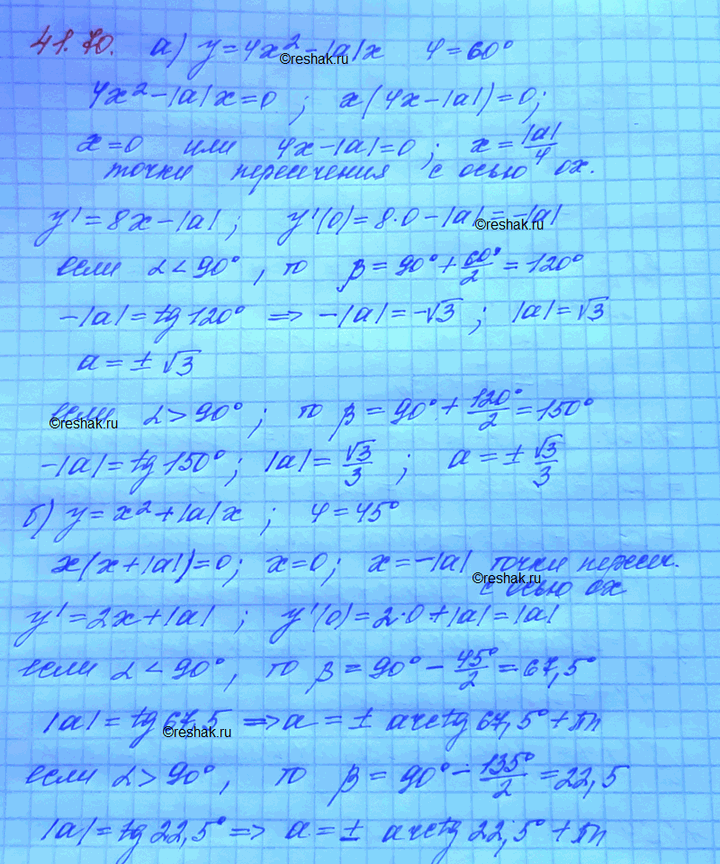 41.70. а) y=4x²-|a|x φ=60°
©reshak.ru
4x²-|a|x=0 ; x(4x-|a|)=0;
x=0 или 4x-|a|=0 ; x=|a|/4
точки пересечения с осью ox.
y'=8x-|a| ; y'(0)=8·0-|a|=-|a|
©reshak.ru
если α<90° , то β=90°+60°/2=120°
-|a|=tg120° => -|a|=-√3 ; |a|=√3
a=±√3
если α>90° ; то β=90°+120°/2=150°
©reshak.ru
-|a|=tg150° ; |a|=√3/3 ; a=±√3/3
б) y=x²+|a|x ; φ=45°
x(x+|a|)=0; x=0; x=-|a| точки пересеч.
©reshak.ru
с осью ox
y'=2x+|a| ; y'(0)=2·0+|a|=|a|
если α<90° , то β=90°-45°/2=67,5°
|a|=tg67,5 => a=± arctg67,5°+πn
©reshak.ru
если α>90° , то β=90°-135°/2=22,5
|a|=tg22,5° => a=± arctg22,5°+πn